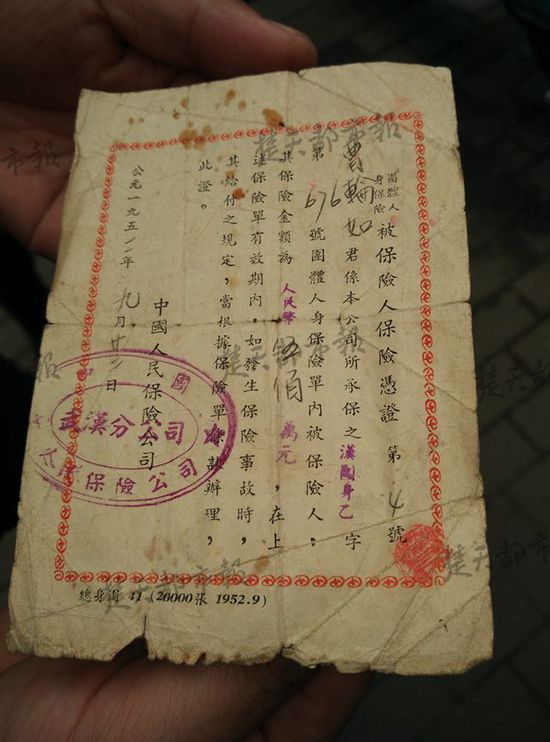 團體人身保險 被保險人保險憑證 第 4 號
曹輪如 君係本公司所承保之漢團身乙字
第 676 號團體人身保險單內被保險人，
其保險金額為 人民幣 伍佰 萬元，在上
述保險單有效期內，如發生保險事故時，
其給付之規定，當根據保險單條款辦理，
此證。
中國人民保險公司
公元一九五二年 九月 廿二日
武漢分公司
保險公司
總身團 41 (20000張 1952.9)
楚天都市報
楚天都市報
楚天都市報
楚天都市報
市報